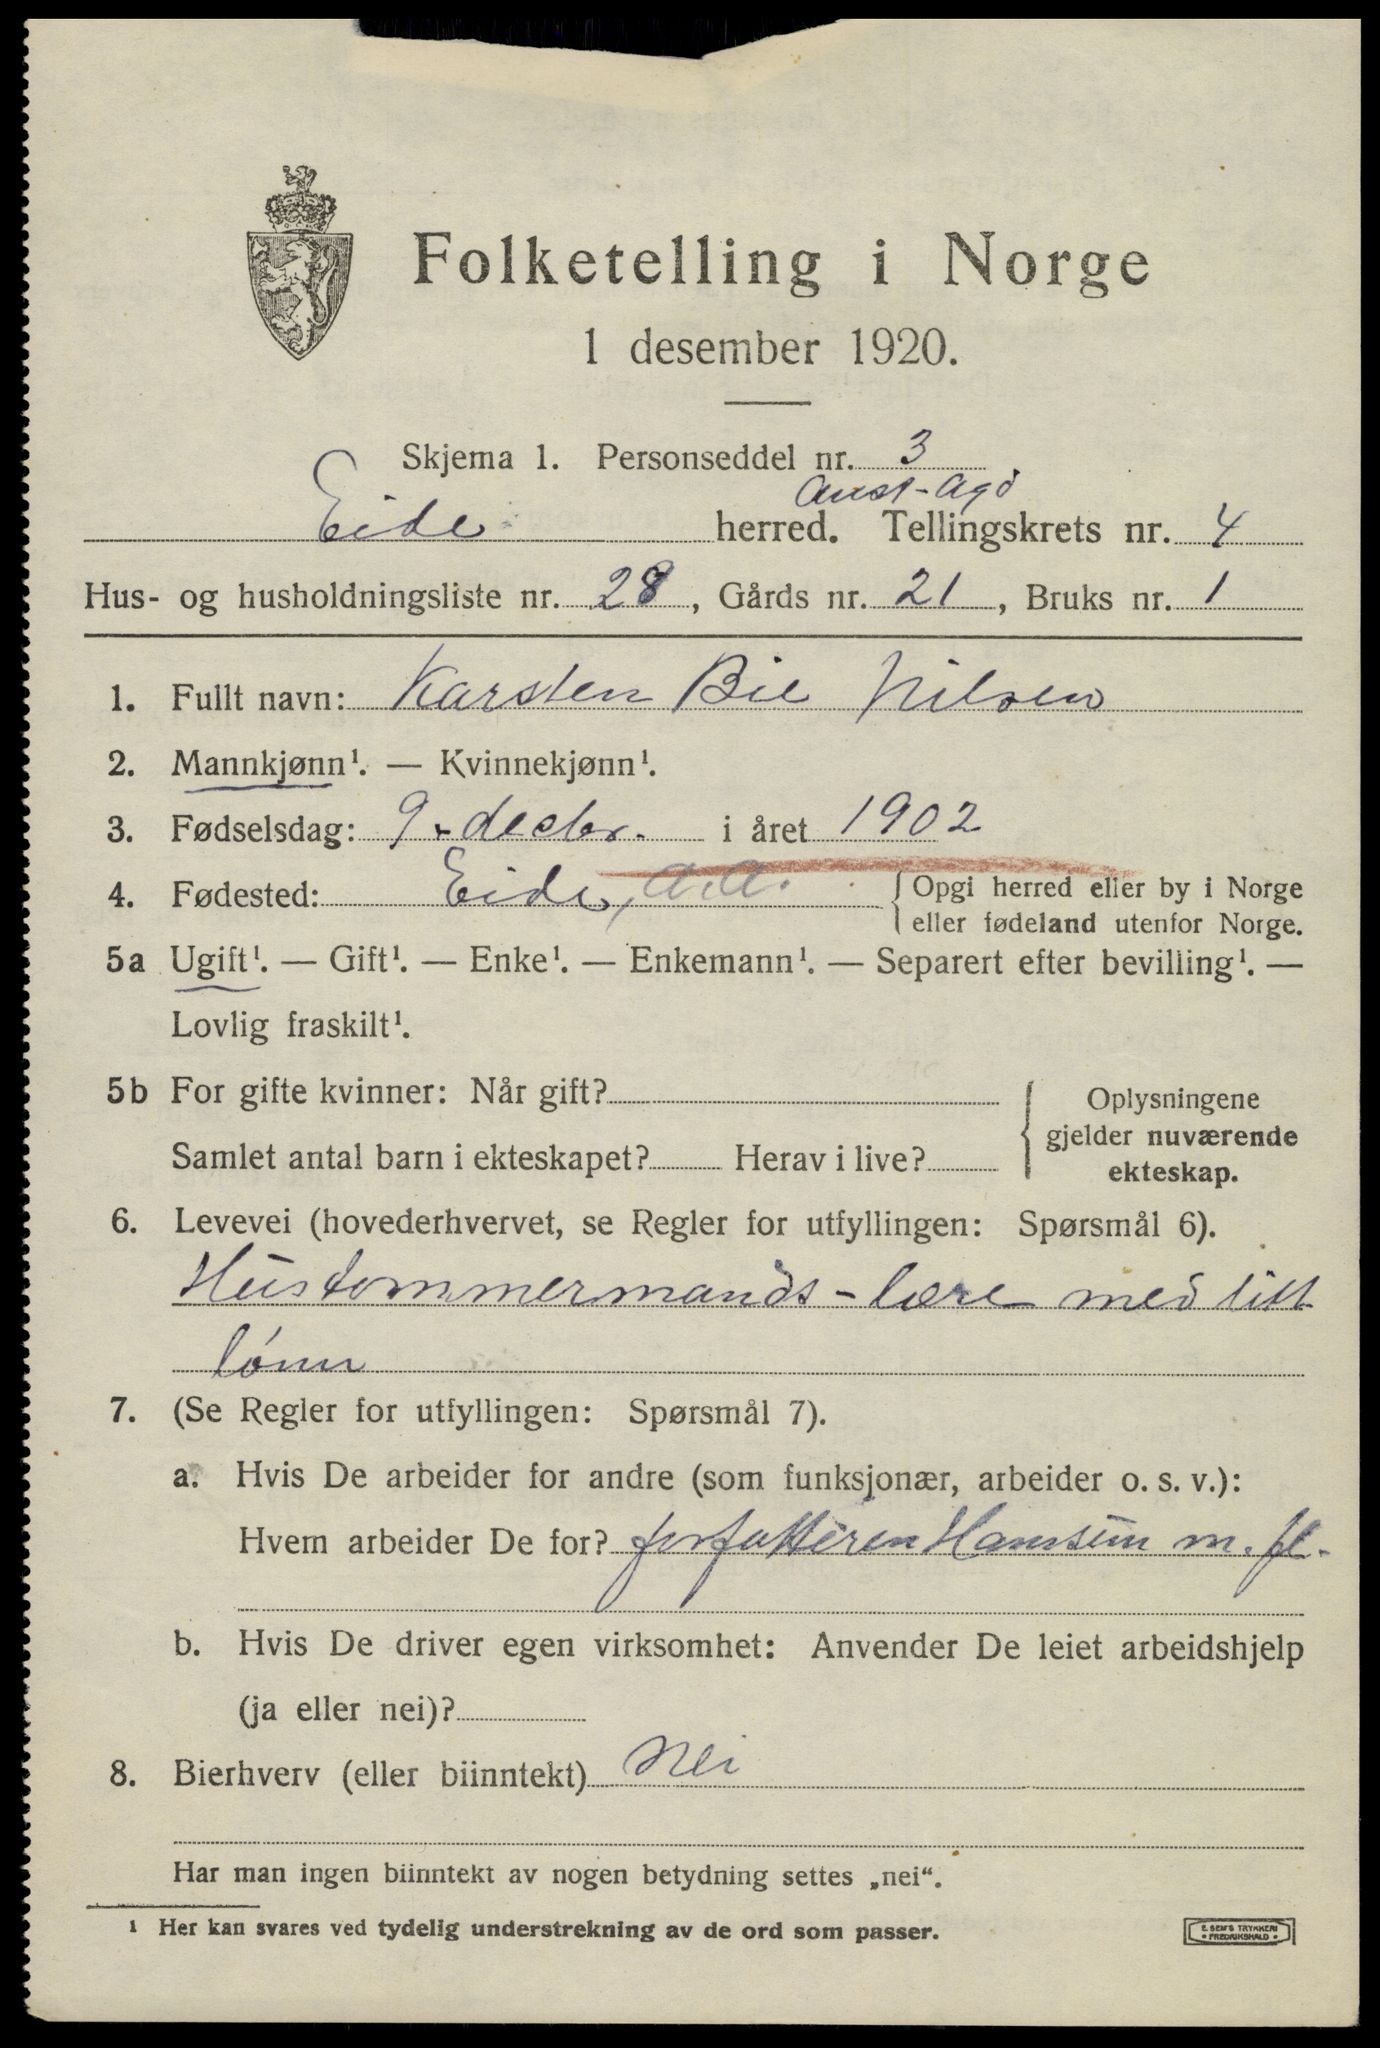 Folketelling i Norge
1 desember 1920.
Skjema 1. Personseddel nr. 3
Aust-Agd
Eide herred. Tellingskrets nr. 4
Hus- og husholdningsliste nr. 28, Gårds nr. 21, Bruks nr. 1
1. Fullt navn: Karsten Bie Nilsen
2. Mannkjønn¹. — Kvinnekjønn¹.
3. Fødselsdag: 9. decbr. i året 1902
4. Fødested: Eide, A.A. { Opgi herred eller by i Norge
eller fødeland utenfor Norge.
5a Ugift¹. — Gift¹. — Enke¹. — Enkemann¹. — Separert efter bevilling¹. —
Lovlig fraskilt¹.
5b For gifte kvinner: Når gift?
Samlet antal barn i ekteskapet? Herav i live?
Oplysningene
gjelder nuværende
ekteskap.
6. Levevei (hovederhvervet, se Regler for utfyllingen: Spørsmål 6).
Hustommermands-lære med litt
lönn
7. (Se Regler for utfyllingen: Spørsmål 7).
a. Hvis De arbeider for andre (som funksjonær, arbeider o. s. v.):
Hvem arbeider De for? forfatteren Hamsun m. fl.
b. Hvis De driver egen virksomhet: Anvender De leiet arbeidshjelp
(ja eller nei)?
8. Bierhverv (eller biinntekt) Nei
Har man ingen biinntekt av nogen betydning settes „nei“.
¹ Her kan svares ved tydelig understrekning av de ord som passer.
E. SEM'S TRYKKERI
• FREDRIKSHALD •